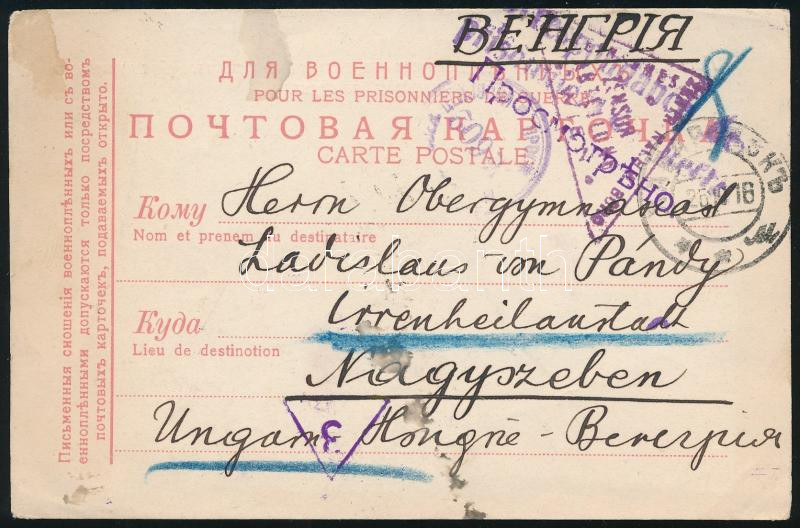 ВЕНГРІЯ
ДЛЯ ВОЕННОПЛѢННЫХЪ
POUR LES PRISONNIERS DE GUERRE
ПОЧТОВАЯ КАРТОЧКА
CARTE POSTALE.
Просмотрѣно
16
Кому Herrn Obergymnasast
Nom et prenem du destinataire
Ladislaus von Pándy
Irrenheilanstalt
Куда
Lieu de destinotion
Nagyszeben
Ungarn Hongrie - Венгрия
3
Письменныя сношенія военноплѣнныхъ или съ во-
еннопленными допускаются только посредствомъ
почтовыхъ карточекъ, подаваемыхъ открыто.
darabanth